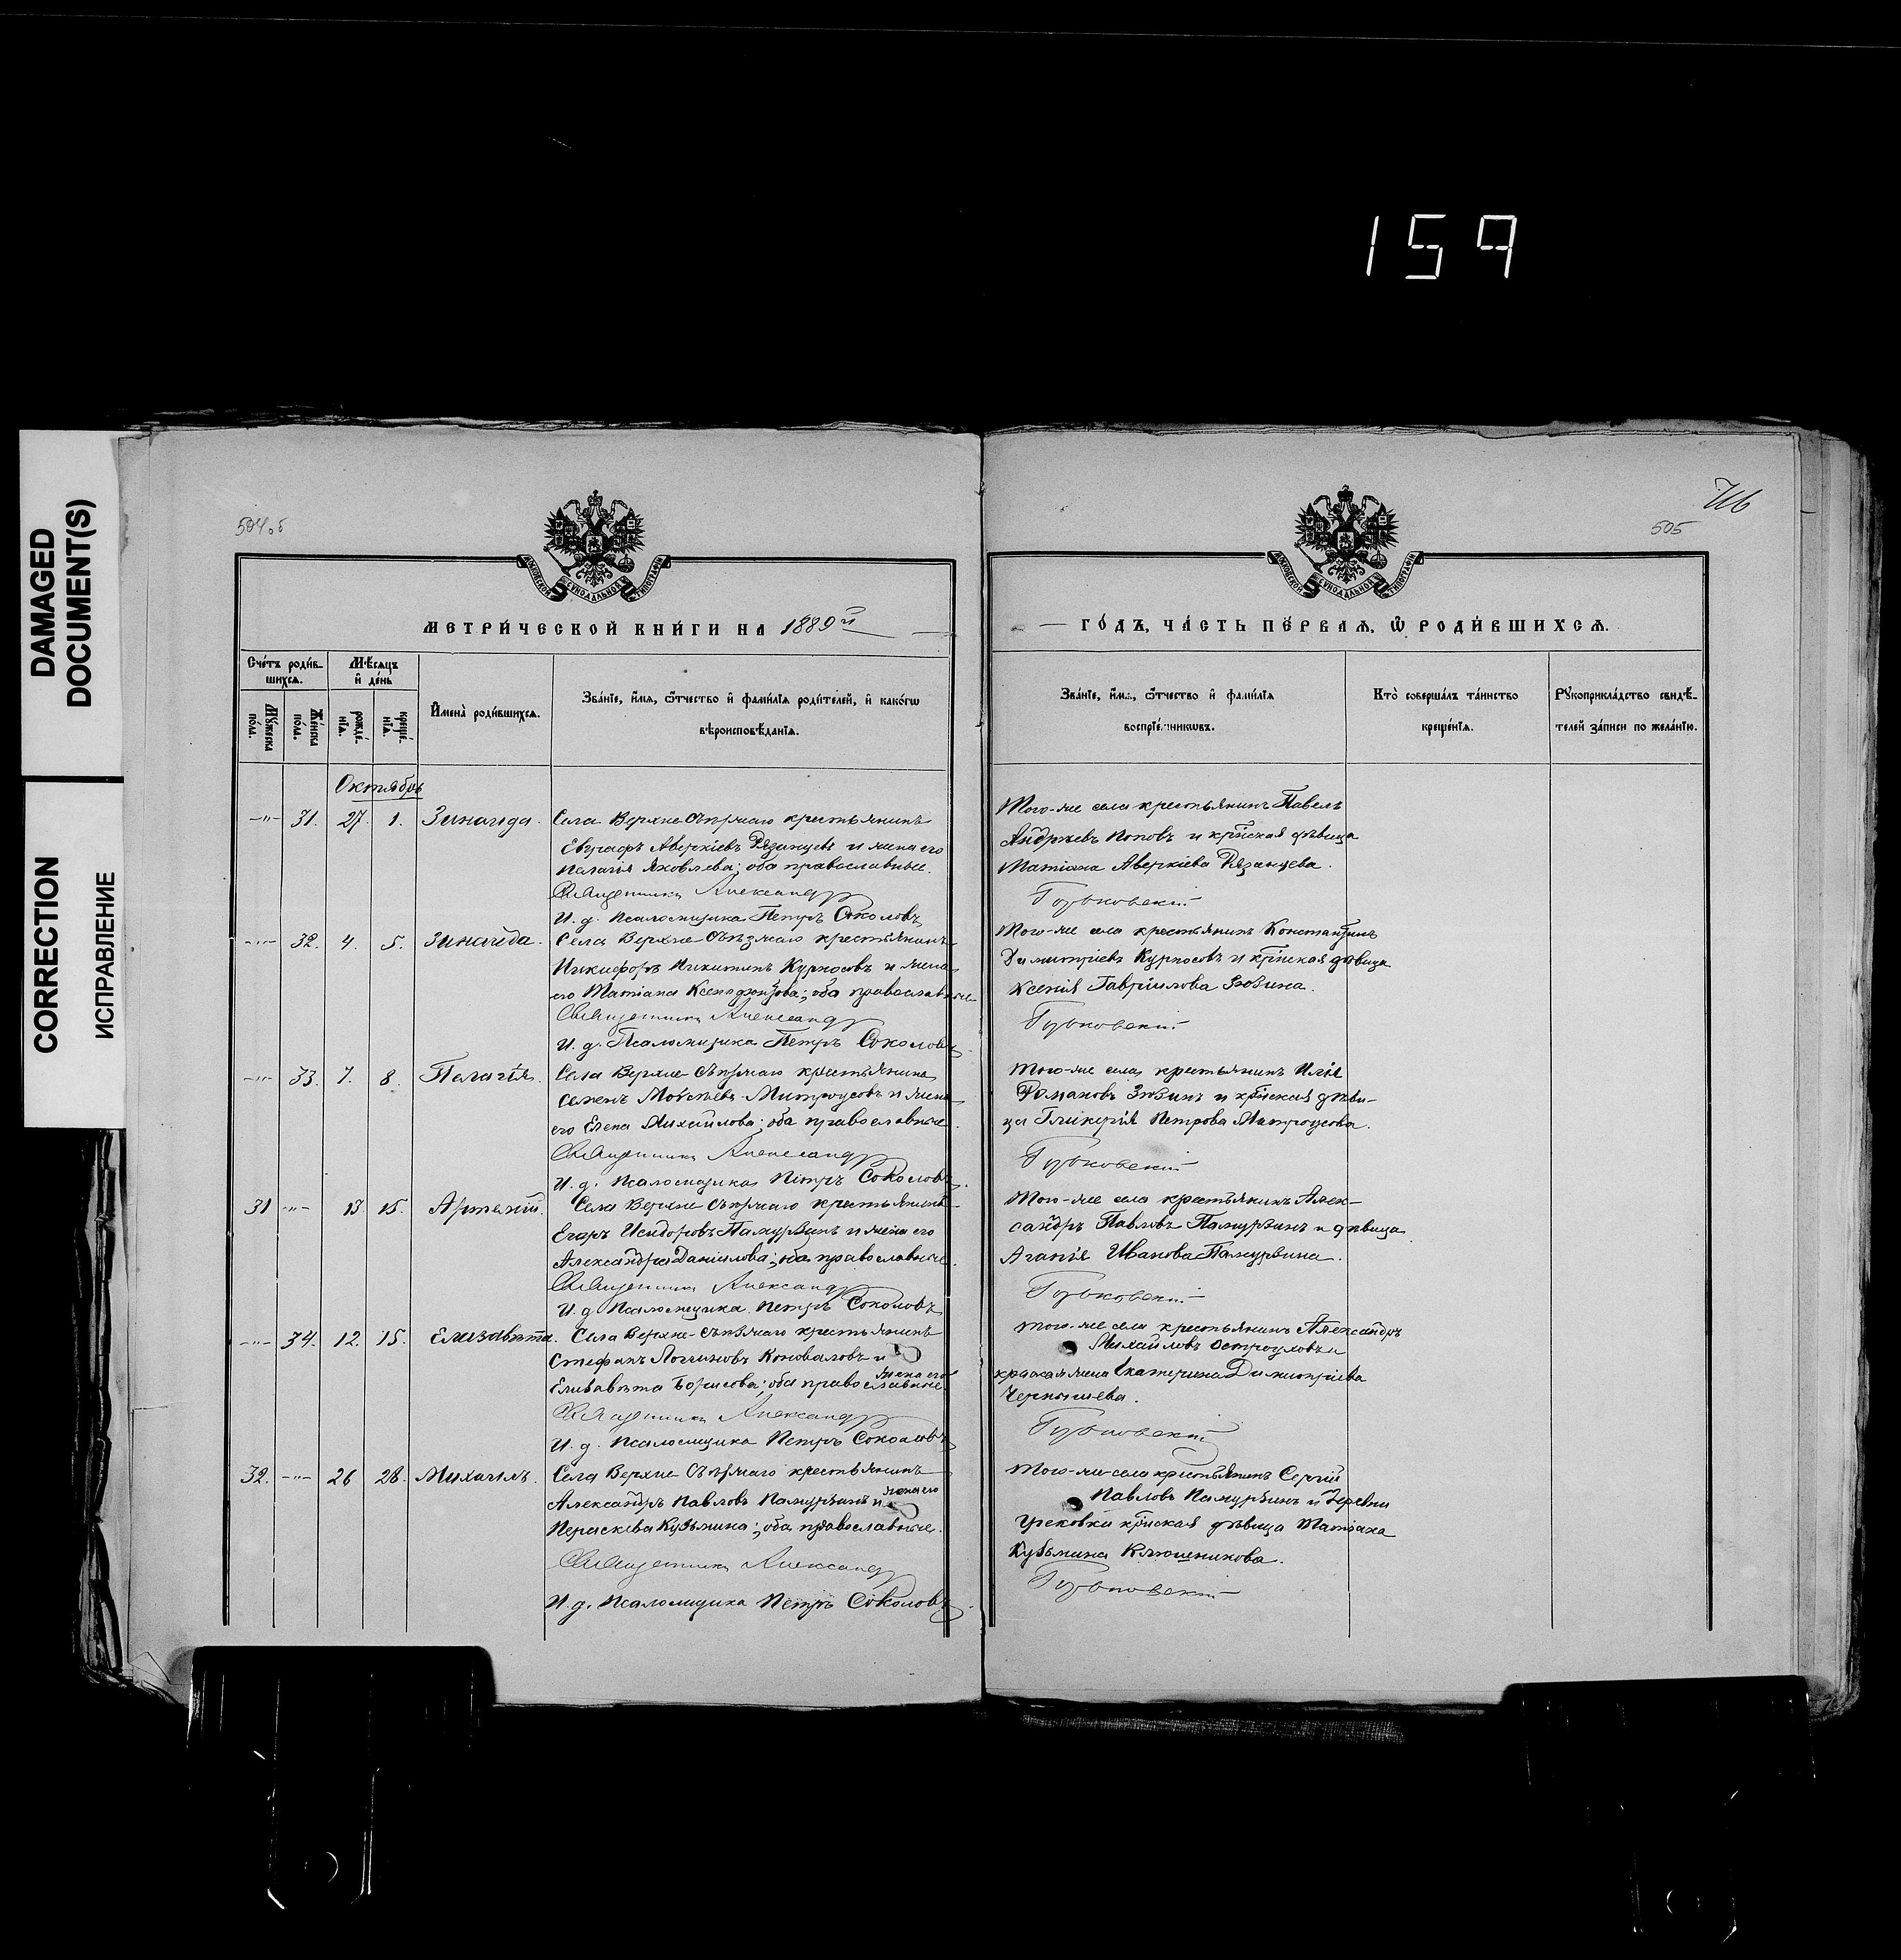 159
DAMAGED
DOCUMENT(S)
CORRECTION
ИСПРАВЛЕНИЕ
504об
МОСКОВСКОЙ СѴНОДАЛЬНОЙ ТИПОГРАФІИ
МЕТРИ́ЧЕСКОЙ КНИ́ГИ НА 1889й
Сче́тъ роди́в-
шихсѧ.
Мꙋ́жеска по́ла.
Же́нска по́ла.
Мѣ́сѧцъ
и҆ де́нь
рожде́-
нїѧ.
креще́-
нїѧ.
И҆мена̀ роди́вшихсѧ.
Зва́нїе, и҆́мѧ, ѻ҆́тчество и҆ фами́лїѧ роди́телей, и҆ како́гѡ
вѣроисповѣ́данїѧ.
Октябрь
-"- 31. 27. 1. Зинаида. Села Верхне-Съѣзжаго крестьянинъ
Евграфъ Аверкіевъ Рязанцевъ и жена его
Пелагія Яковлева; оба православные.
Священникъ Александръ
И. д. Псаломщика Петръ Соколовъ
-"- 32. 4. 5. Зинаида. Села Верхне Съѣзжаго крестьянинъ
Никифоръ Никитинъ Курносовъ и жена
его Татіана; оба православные
Священникъ Александръ
И. д. Псаломщика Петръ Соколовъ
-"- 33. 7. 8. Пелагія. Села Верхне Съѣзжаго крестьянинъ
Семенъ Моѵсѣевъ Митроусовъ и жена
его Елена Михайлова; оба православные.
Священникъ Александръ
И. д. Псаломщика Петръ Соколовъ.
31 -"- 13. 15. Артемій. Села Верхне Съѣзжаго крестьянинъ
Егоръ Исидоровъ и жена его
Александра Даніилова; оба православные.
Священникъ Александръ
И. д. Псаломщика Петръ Соколовъ
-"- 34. 12. 15. Елизавѣта. Села Верхне-Съѣзжаго крестьянинъ
Стефанъ Логиновъ Коноваловъ и
жена его
Елизавѣта Борисова; оба православные
Священникъ Александръ
И. д. Псаломщика Петръ Соколовъ
32. -"- 26 28. Михаилъ. Села Верхне Съѣзжаго крестьянинъ
Александръ Павловъ и жена его
Параскева Кузьмина; оба православные.
Священникъ Александръ
И. д. Псаломщика Петръ Соколовъ
505
МОСКОВСКОЙ СѴНОДАЛЬНОЙ ТИПОГРАФІИ
ГО́ДЪ, ЧА́СТЬ ПЕ́РВАѦ, Ѡ҆ РОДИ́ВШИХСѦ.
Зва́нїе, и҆́мѧ, ѻ҆́тчество и҆ фами́лїѧ
воспрїе́мникѡвъ.
Кто̀ соверша́лъ та́инство
креще́нїѧ.
Рꙋкоприкла́дство свидѣ́-
телей за́писи по жела́нїю.
Того-же села крестьянинъ Павелъ
Андреевъ Поповъ и кр҃нская дѣвица
Татіана Аверкіева Рязанцева.
Того-же села крестьянинъ Константинъ
Димитріевъ Курносовъ и кр҃нская дѣвица
Ксенія Гавріилова Зювина.
Того-же села крестьянинъ Илія
Романовъ Зювинъ и кр҃нская дѣви-
ца Гликерія Петрова Митроусова.
Того-же села крестьянинъ Алек-
сандръ Павловъ и дѣвица
Агапія Иванова
Того-же села крестьянинъ Александръ
Михайловъ Остроуховъ и
жена Екатерина Димитріева
Чернышева.
Того-же села крестьянинъ Сергій
Павловъ и деревни
Грековки кр҃нская дѣвица Татіана
Кузьмина Ключникова.